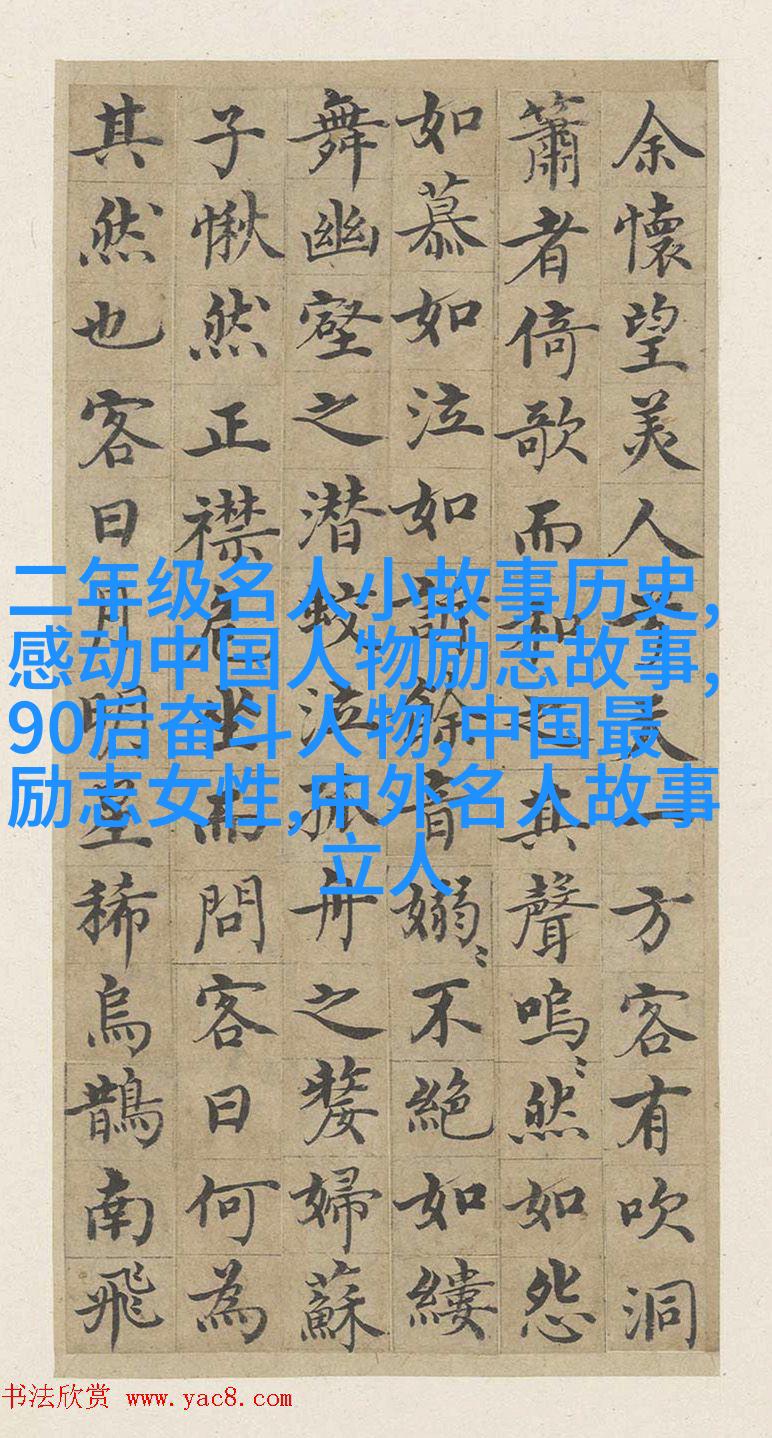 余懷望美人兮天一方客有吹洞
簫者倚歌而和之其聲嗚〻然如怨
如慕如泣如訴餘音嫋〻不絕如縷
舞幽壑之潜蛟泣孤舟之嫠婦蘇
子愀然正襟危坐而問客曰何為
其然也客曰月明星稀烏鵲南飛
二年级名人小故事历史,
感动中国人物励志故事,
90后奋斗人物,中国最
励志女性,中外名人故事
立人
书法欣赏 www.yac8.com